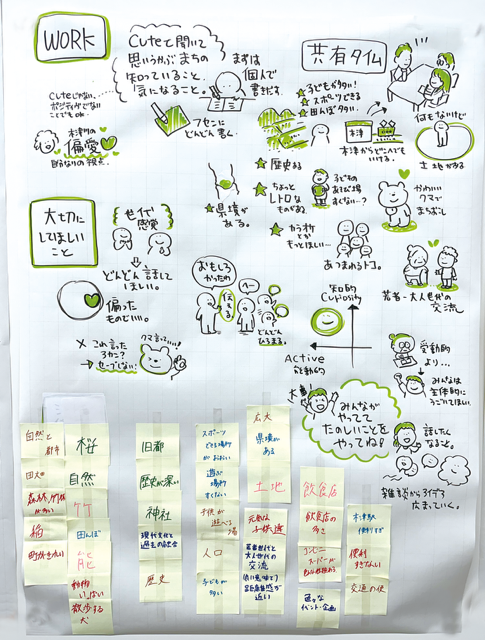 WORK
Cuteと聞いて
思いうかぶまちの
知っていること、
気になること。
まずは
個人で
書きだす。
Cuteじゃない、
ポジティブでない
ことでもok.
木津川の
偏愛
自分なりの視点。
フセンに
どんどん書く。
共有タイム
子どもが多い!
スポーツできる
田んぼ多い
木津
木津からどこへでも
いける。
何もないけど
土地がある
歴史ある
ちょっと
レトロな
ものがある
県境が
ある。
子どもの
あそび場
すくない…?
カラオケとか
もっとほしい…
あつまれるトコ。
かわいい
クマで
まちおこし
若者-大人世代の
交流
大切に
してほしい
こと
せ代
感覚
どんどん話して
ほしい。
偏った
ものでいい。
× これ言った
ろかな?
セーブしない!
クマ言っていい!
おもしろ
かったわ
伝える
へー
どんどん
ひろまる。
知的
Curiosity
Active
能動的
受動的
より…
みんなは
主体的に
うごいてほしい
大事!
みんなが
やってて
たのしいことを
やってね!
話したく
なること。
雑談からアイデア
広まっていく。
自然と
都市
桜
田んぼ
自然
竹
稲
田んぼ
熊
動物
いっぱい
散歩する
犬
旧都
歴史が深い
神社
現代文化と
過去の融合
歴史
スポーツ
できる場所
がおおい
遊ぶ
場所
すくない
子供が
遊べる
場
人口
子どもが
多い
広大
県境が
ある
土地
元気な
子供達
若者世代と
大人世代の
交流
距離感が
近い
飲食店
飲食店の
多さ
コンビニ
スーパーが
色々な
イベント・企画
木津駅
便利すぎ
便利
すぎない
交通の便